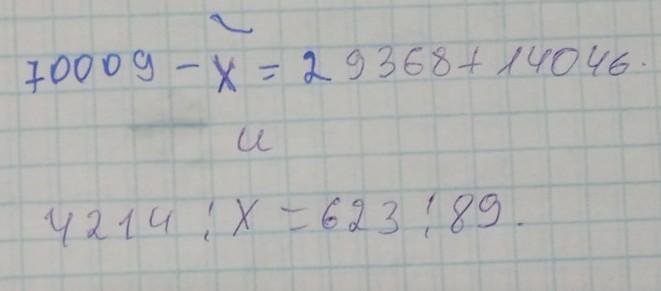 70009 - x = 29368 + 14046.
и
4214 : x = 623 : 89.